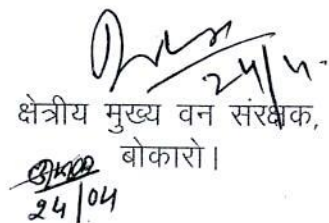 24/4.
क्षेत्रीय मुख्य वन संरक्षक,
बोकारो।
24/04